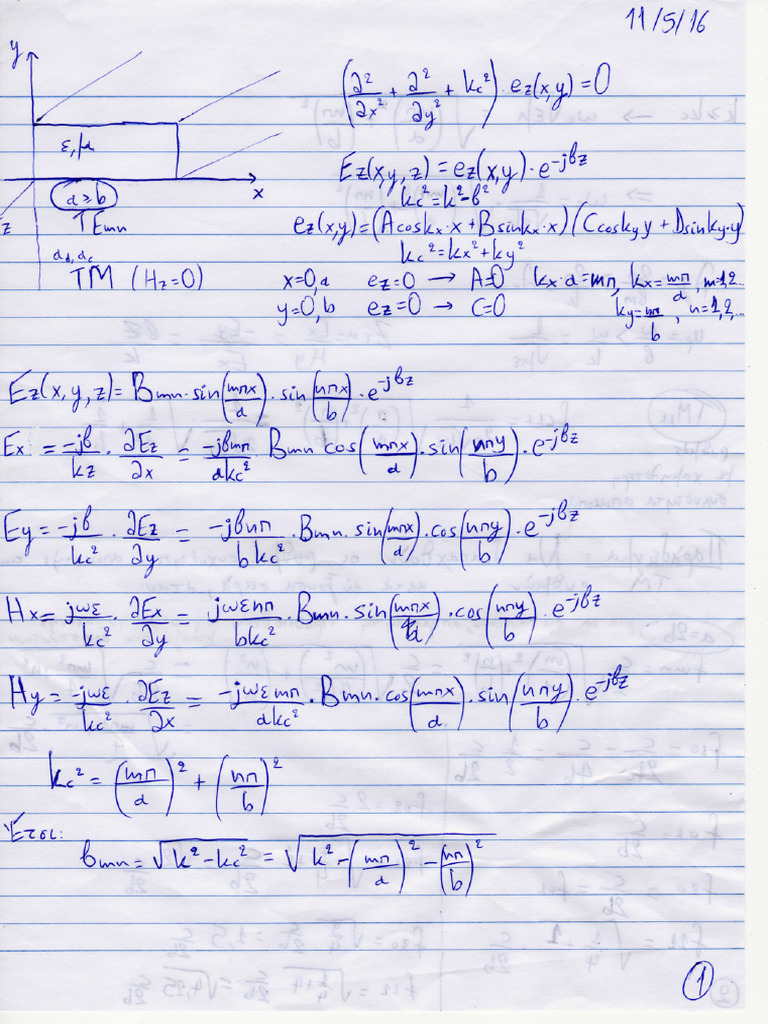 11/5/16
y
(∂²/∂x² + ∂²/∂y² + kc²)·ez(x,y)=0
ε, μ
Ez(x,y,z)=ez(x,y)·e^-jβz
x
a≥b
kc²=k²-β²
z
TEmn
ez(x,y)=(Acoskx·x+Bsinkx·x)(Ccoskyy+Dsinky·y)
kc²=kx²+ky²
ad, ac
TM (Hz=0) x=0,a ez=0 → A=0 kx·a=mπ, kx=mπ/a, m=1,2...
y=0,b ez=0 → C=0 ky=mπ/b, n=1,2,...
Ez(x,y,z)=Bmn·sin(mπx/a)·sin(nπx/b)·e^-jβz
Ex=-jβ/kz·∂Ez/∂x=-jβmπ/akc² Bmn cos(mπx/a)·sin(nπy/b)·e^-jβz
Ey=-jβ/kc²·∂Ez/∂y=-jβnπ/bkc²·Bmn·sin(mπx/a)·cos(nπy/b)·e^-jβz
Hx=jωε/kc²·∂Ex/∂y=jωεnπ/bkc²·Bmn·sin(mπx/a)·cos(nπy/b)·e^-jβz
Hy=-jωε/kc²·∂Ez/∂x=-jωεmπ/akc²·Bmn·cos(mπx/a)·sin(nπy/b)·e^-jβz
kc²=(mπ/a)²+(nπ/b)²
Έτσι:
βmn=√(k²-kc²)=√(k²-(mπ/a)²-(nπ/b)²)
1